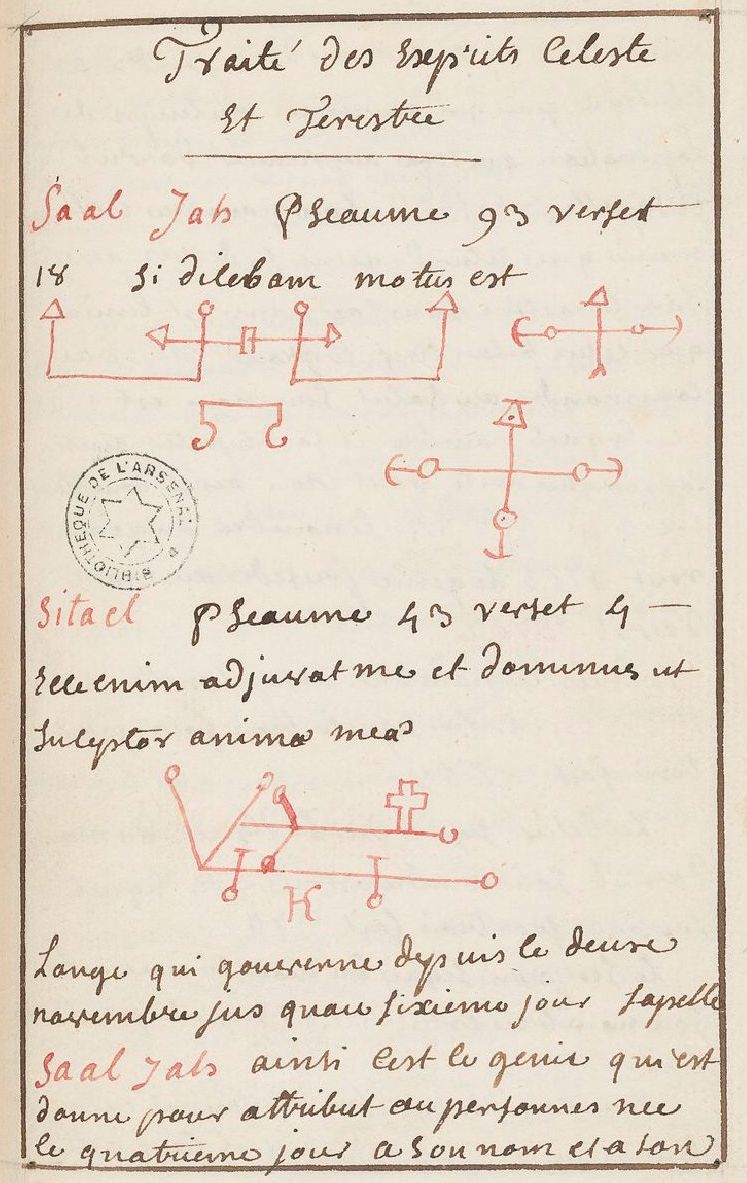 Traité des Esprits Celeste
Et Terestre
Saal Jah Pseaume 93 verset
18 Si dilebam motus est
BIBLIOTHEQUE DE L'ARSENAL
Sitael Pseaume 43 verset 4 —
Elle enim adjuvat me et dominus ut
Suleptor anima mea
K
Lange qui gouverne depuis le deuxe
novembre jus quau sixieme jour sapelle
Saal Jah ainsi Cest le genie qui est
donne pour attribut au personnes nee
le quatrieme jour a son nom et a son